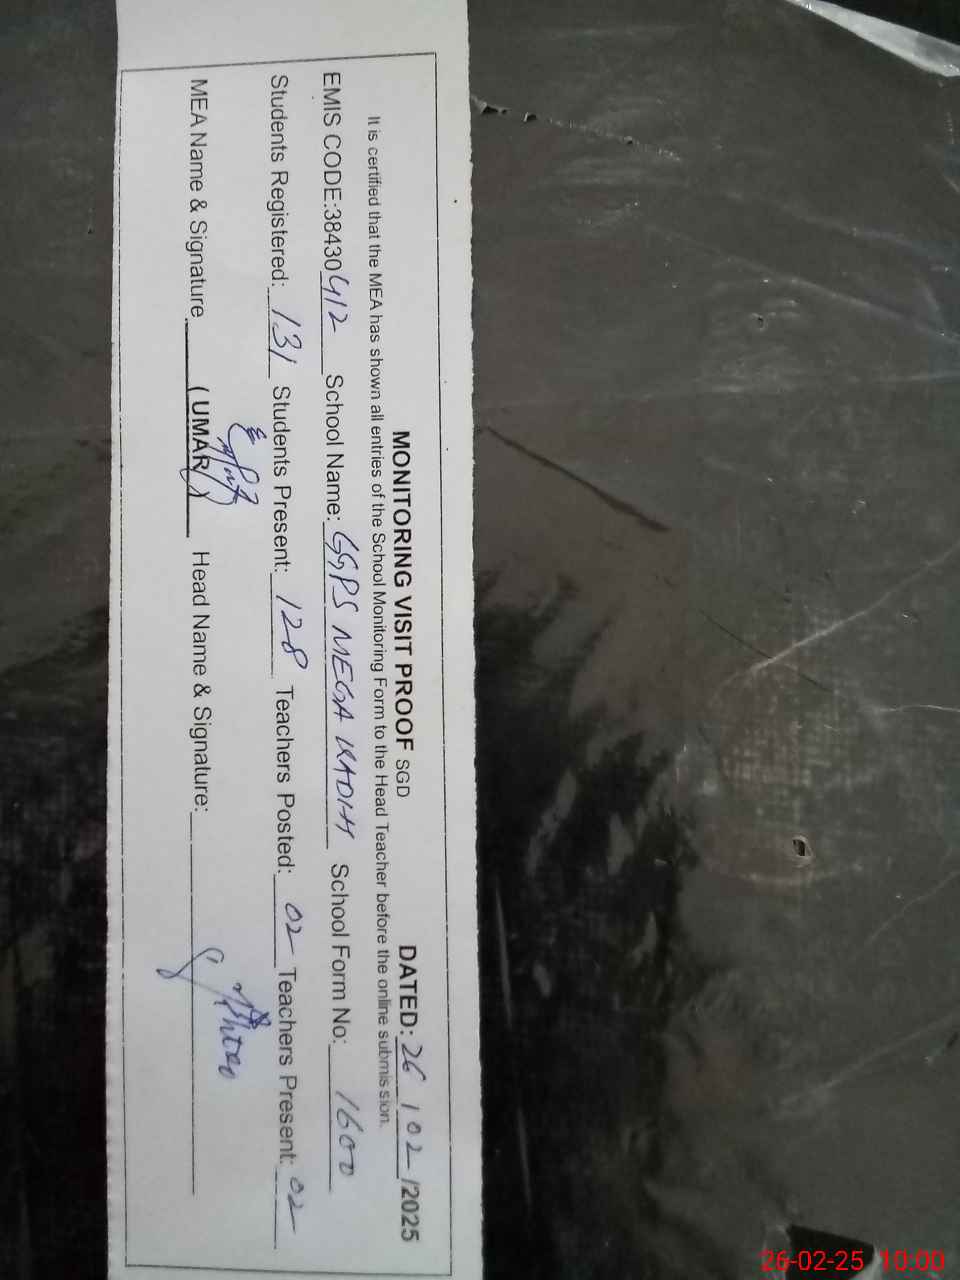 MONITORING VISIT PROOF SGD DATED: 26/02/2025
It is certified that the MEA has shown all entries of the School Monitoring Form to the Head Teacher before the online submission.
EMIS CODE:38430412 School Name: GGPS MEGA KADIH School Form No: 1600
Students Registered: 131 Students Present: 128 Teachers Posted: 02 Teachers Present: 02
MEA Name & Signature (UMAR) Head Name & Signature:
26-02-25 10:00